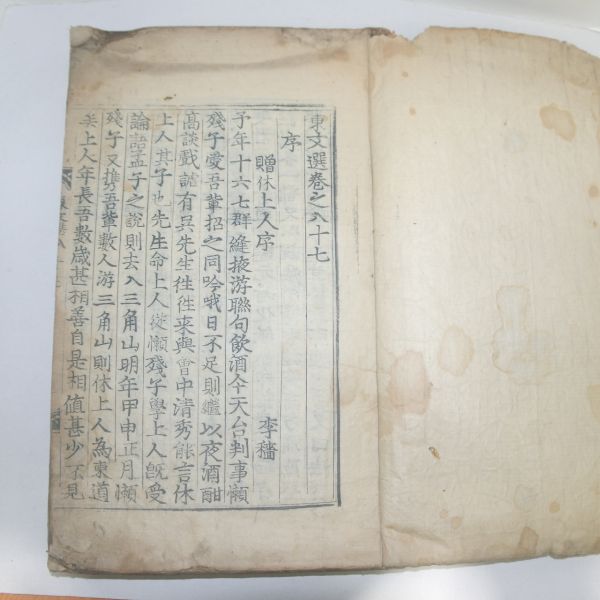 東文選卷之八十七
序
贈休上人序 李穡
予年十六七群縫掖游聯句飮酒今天台判事懶
殘子愛吾輩招之同吟哦日不足則繼以夜酒酣
高談戱謔有吳先生徃徃來與會中清秀能言休
上人其子也先生命上人從懶殘子學上人旣受
論語孟子之說則去入三角山明年甲申正月懶
殘子又携吾輩數人游三角山則休上人為東道
矣上人年長吾數歲甚相善自是相値甚少不見